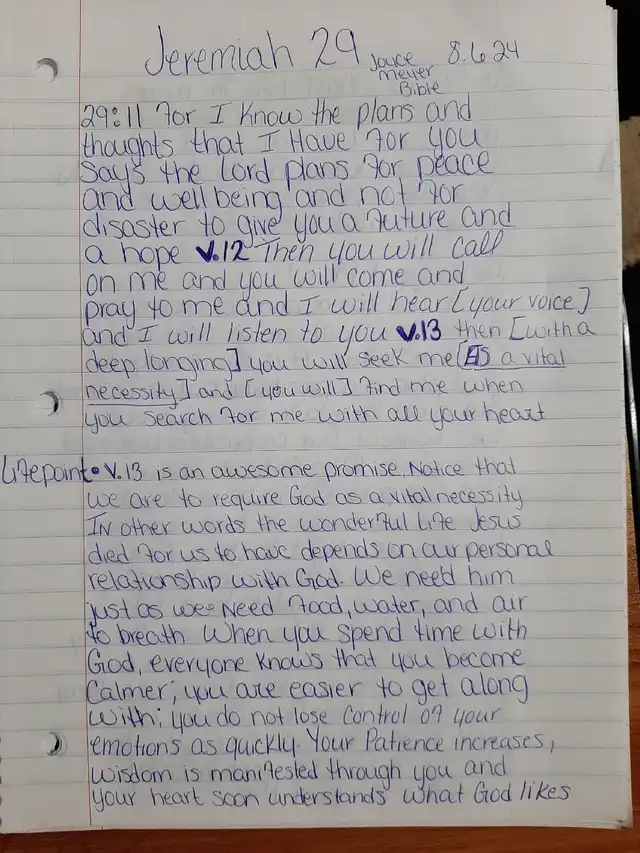 Jeremiah 29 Joyce Meyer Bible 8.6.24
29:11 For I Know the plans and
thoughts that I Have For you
says the Lord plans For peace
and well being and not For
disaster to give you a Future and
a hope V.12 Then you will call
on me and you will come and
pray to me and I will hear [your voice]
and I will listen to you V.13 then [with a
deep longing] you will seek me [AS a vital
necessity] and [you will] Find me when
you search For me with all your heart
Lifepoint• V.13 is an awesome promise. Notice that
we are to require God as a vital necessity
IN other words the wonderful Life Jesus
died For us to have depends on our personal
relationship with God. We need him
just as we Need Food, water, and air
to breath When you spend time with
God, everyone Knows that you become
Calmer; you are easier to get along
with; you do not lose Control of your
emotions as quickly. Your Patience increases,
wisdom is manifested through you and
your heart soon understands what God likes